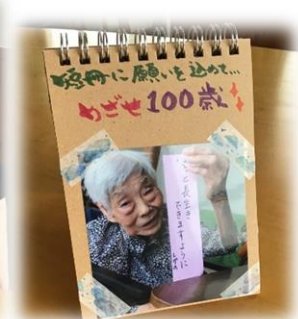 短冊に願いを込めて…
めざせ100歳
と長生き
できますように